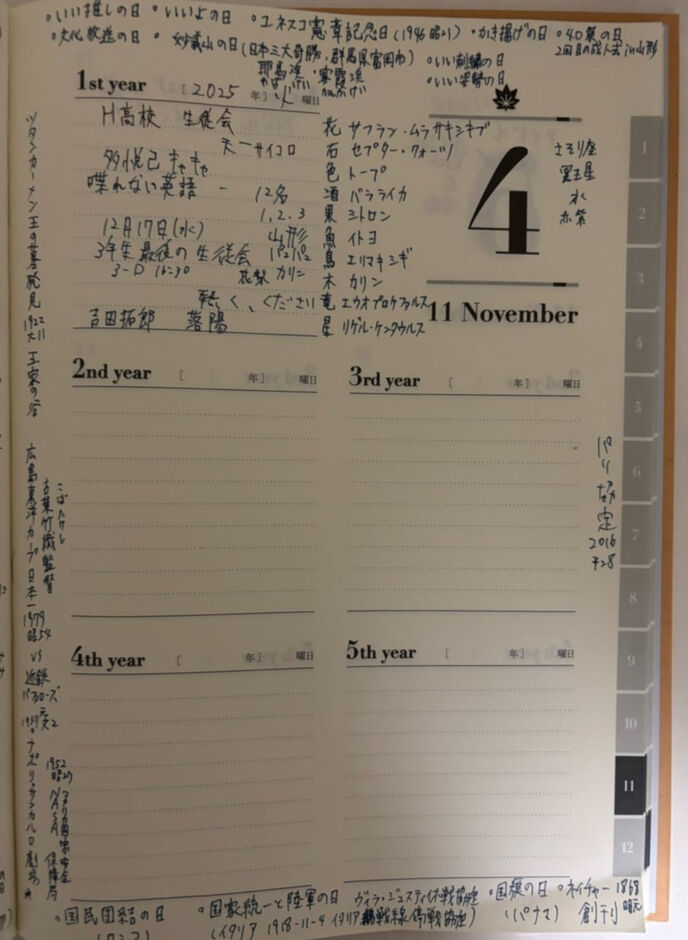 ・いい推しの日 ・いいよの日 ・ユネスコ憲章記念日(1946 昭21) ・かき揚げの日 ・40祭の日
・文化放送の日 ・妙義山の日(日本三大奇勝・群馬県富岡市) ・いい刺繍の日 2回目の成人式 in 山形
耶馬渓・寒霞渓 ・いい姿勢の日
やばけい かんかけい
1st year [ 2025 年] 火 曜日
H高校 生徒会
天一サイコロ
喋れない英語 ー 12名
12月17日(水) 1.2.3
山形
3年生最後の生徒会 パ2パ2
3-D 16:30 花梨 カリン
軽く、ください
吉田拓郎 落陽
花 サフラン・ムラサキシキブ
石 セプター・クォーツ
色 トープ
酒 バラライカ
果 シトロン
魚 イトヨ
鳥 エリマキシギ
木 カリン
竜 エウオプロケファルス
星 リゲル・ケンタウルス
4
11 November
さそり座
冥王星
水
赤紫
2nd year [ 年] 曜日
3rd year [ 年] 曜日
4th year [ 年] 曜日
5th year [ 年] 曜日
1
2
3
4
5
6
7
8
9
10
11
12
パリ協定
2016
平28
ツタンカーメン王の墓発見 1922 大11 王家の谷
広島東洋カープ日本一 1979 昭54 vs 近鉄バファローズ
古葉竹識監督
こば たけし
1737 元文2 ・ナポリ・サンカルロ劇場
1952 昭27 アメリカ国家安全保障局
NSA
・国民団結の日
(ロシア)
・国家統一と陸軍の日 ヴィラ・ジュスティ休戦協定
(イタリア 1918-11-4 イタリア戦線停戦協定)
・国旗の日
(パナマ)
・ネイチャー 1868
創刊 明元